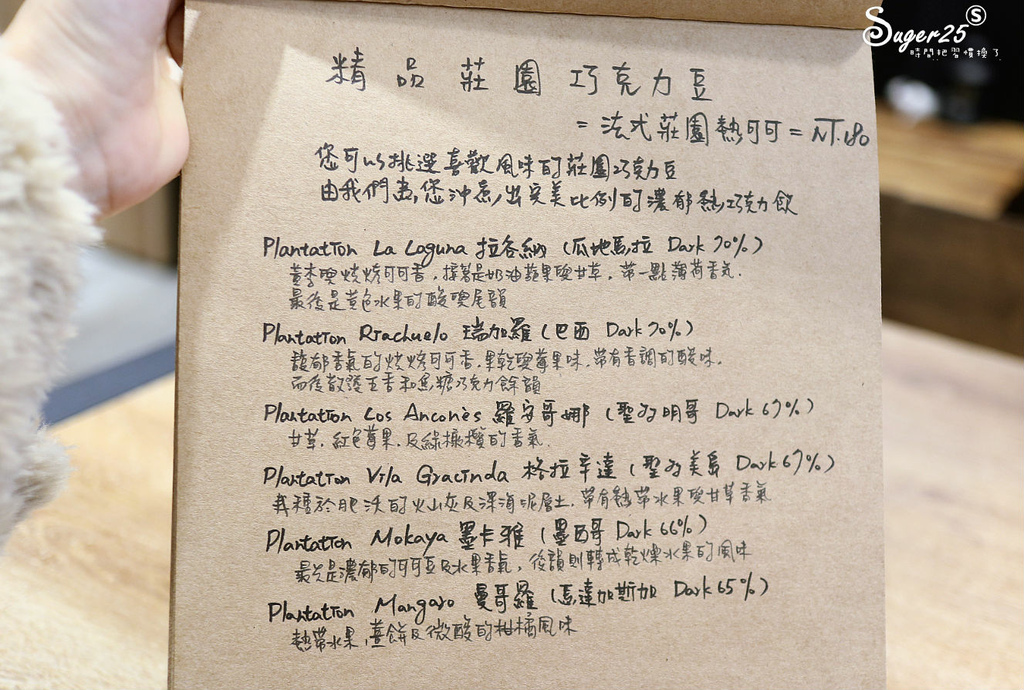 Suger25 S
時間把習慣換了
精品莊園巧克力豆
=法式莊園熱可可=NT.180
您可以挑選喜歡風味的莊園巧克力豆
由我們為您沖煮出完美比例的濃郁熱巧克力飲
Plantation La Laguna 拉各納 (瓜地馬拉 Dark 70%)
黃李與燒烤可可香,接著是奶油蘋果與甘草,帶一點薄荷香氣.
最後是黃色水果的酸與尾韻
Plantation Riachuelo 瑞加羅 (巴西 Dark 70%)
馥郁香氣的燒烤可可香.果乾與莓果味.帶有香調的酸味.
而後散發五香和黑糖巧克力餘韻
Plantation Los Anconès 羅安哥娜 (聖多明哥 Dark 67%)
甘草.紅色莓果.及綠橄欖的香氣.
Plantation Vila Gracinda 格拉辛達 (聖多美島 Dark 67%)
栽種於肥沃的火山灰及深海泥層土.帶有熱帶水果與甘草香氣
Plantation Mokaya 墨卡雅 (墨西哥 Dark 66%)
最先是濃郁的可可豆及水果香氣,後韻則轉成乾燥水果的風味
Plantation Mangaro 曼哥羅 (馬達加斯加 Dark 65%)
熱帶水果,薑餅及微酸的柑橘風味